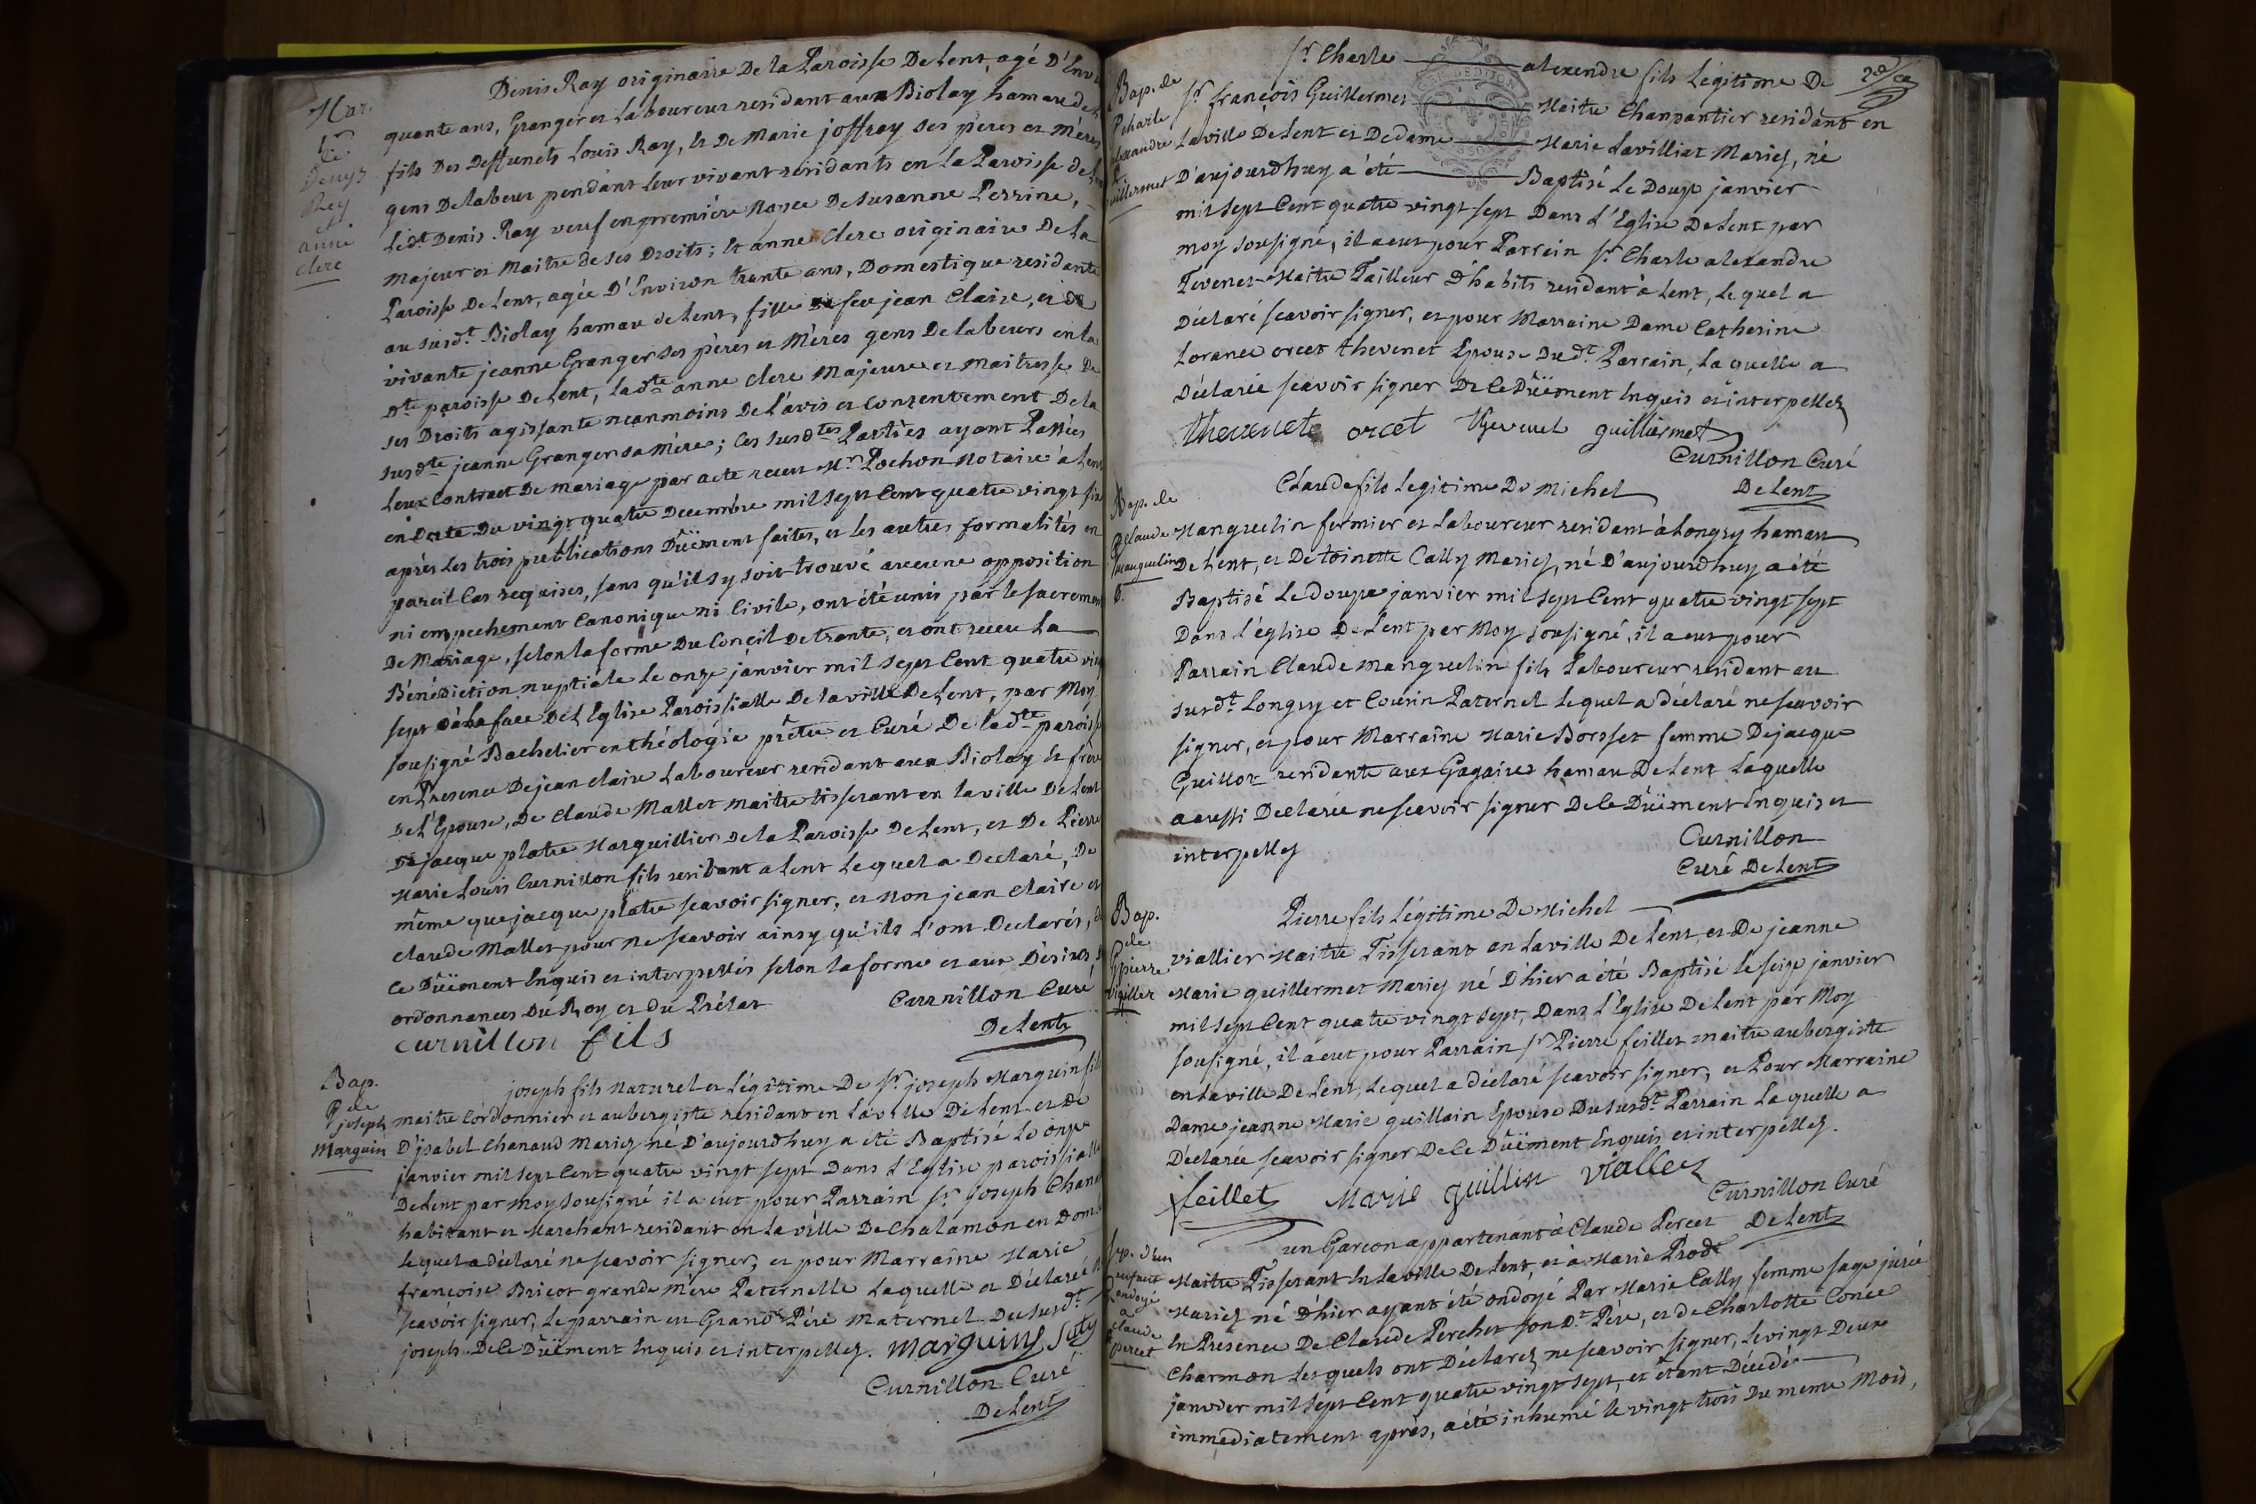 Mar.
de
Denys
Rey
et
anne
clerc
Denis Ray originaire De la Paroisse De Lent, agé D'Envi
quante ans, Granger et Laboureur residant aux Biolay hamau de
fils Des Deffunets Louis Ray, et De Marie joffray ses pères et Mères
gens De labeur pendant leur vivant residants en la Paroisse de
Ledt Denis Ray veuf en première Noçce De susanne Perrine,
Majeur et Maitre de ses Droits; Et anne Clerc originaire De la
Paroisse De Lent, agée D'Environ trante ans, Domestique residante
au susdt. Biolay hamau de Lent, fille de feu jean Claire, et de
vivante jeanne Granger ses pères et Mères gens De labeurs en la
dte paroisse De Lent, ladte anne clerc Majeure et Maitresse De
ses Droits agissante neanmoins De l'avis et Consentement De la
susdte jeanne Granger sa Mère; Les susdtes Parties ayant Passées
leur Contract De Mariage par acte receu Mr Pochon Notaire à Lent
en Date Du vingt quatre Decembre mil sept Cent quatre vingt six
après Les trois publications Düëment faites, et les autres formalités en
pareil Cas requises, sans qu'il s'y soit trouvé aucune opposition
ni empechement Canonique ni Civile, ont été unis par le sacrement
De Mariage, selon la forme Du Conçil De trante, et ont receu La
Bénédiction nuptiale le onze janvier mil sept Cent quatre vingt
sept à la face De L'Eglise Paroissialle De la ville De Lent, par Moy
sousigné Bachelier en théologie prêtre et Curé De ladte paroisse
en Presence De jean claire Laboureur residant aux Biolay et frère
De L'Epouse, De Claude Mallet maitre tisserant en la ville De Lent
De jacque platre Marguillier De la Paroisse De Lent, et De Pierre
Marie Louis Curnillon fils residant a Lent Lequel a Declaré, De
même que jacque platre sçavoir signer, et Non jean Claire et
claude Mallet pour ne sçavoir ainsy qu'ils l'ont Declarés, de
ce Düëment Enquis et interpellés selon la forme et aux Désirs
ordonnances Du Roy et du Prélat Curnillon Curé
curnillon fils De Lent
Bap.
de
joseph
Marguin
joseph fils Naturel et Légitime De Sr. joseph Marguin fils
maitre Cordonnier et aubergiste residant en La ville De Lent et De
D'ysabel Chanaud Mariez né D'aujourdhuy a été Baptisé Le onze
janvier mil sept Cent quatre vingt sept Dans L'Eglise paroissialle
De Lent par Moy sousigné il a eut pour Parrain Sr. joseph Chan
habitant et Marchant residant en La ville De Chalamon en Dom
Lequel a déclaré ne sçavoir signer, et pour Marraine Marie
françoise Bricot grande Mère Paternelle Laquelle a Déclarée
sçavoir signer, Le parrain est Grand Père maternel Du susdt.
joseph De Ce Düëment Enquis et interpellez. Marguin
Curnillon Curé
De Lent
Bap. de
charle
alexandre
guillermet
Sr. Charle alexendre fils Légitime De
Sr. françois Guillermet Maitre Charpantier residant en
La ville De Lent et De dame Marie Lavilliat Mariez, né
D'aujourdhuy a été Baptisé Le Douze janvier
mil sept Cent quatre vingt sept Dans L'Eglise De Lent par
moy sousigné, il a eut pour Parrein Sr. Charle alexandre
Tevenet Maitre Tailleur D'habits residant à Lent, Lequel a
Déclaré sçavoir signer, et pour Marraine Dame Catherine
Lorance orcet thevenet Epouse Dudt. Parrain, Laquelle a
Déclarée sçavoir signer De Ce Düëment Enquis et interpellez
thevenet orcet thevenet guillermet
Curnillon Curé
De Lent
Bap. de
claude
manguelin
Claude fils Legitime De Michel
Manguelin fermier et Laboureur residant à Longry hamau
De Lent, et De toinette Cally Mariez, né D'aujourdhuy a été
Baptisé Le Douze janvier mil sept Cent quatre vingt sept
Dans L'église De Lent par Moy sousigné, il a eut pour
Parrain Claude manguelin fils Laboureur residant au
susdt. Longry et Cousin Paternel Lequel a déclaré ne sçavoir
signer, et pour Marraine Marie Borsset femme De jacque
Guillot residante aux Gagaires hamau De Lent Laquelle
a aussi Declarée ne sçavoir signer De Ce Düëment Enquis et
interpellez
Curnillon
Curé De Lent
Bap.
de
pierre
Pierre fils Légitime De Michel
viallier Maitre Tisserant en La ville De Lent, et De jeanne
Marie guillermet Mariez né D'hier a été Baptisé Le seize janvier
mil sept Cent quatre vingt sept, Dans L'Eglise De Lent par Moy
sousigné, il a eut pour Parrain Sr. Pierre feillet maitre aubergiste
en La ville De Lent, Lequel a déclaré sçavoir signer, et Pour Marraine
Dame jeanne Marie guillain Epouse Du susdt. Parrain Laquelle a
Déclarée sçavoir signer De Ce Düëment Enquis et interpellez.
feillet Marie guillin vialler
Curnillon Curé
De Lent
Sep. d'un
enfant
ondoyé
a
claude
percet
un Garcon appartenant à Claude Percet
Maitre Tisserant En La ville De Lent, et à Marie Prodt
Mariez né D'hier ayant été ondoyé Par Marie Cally femme sage jurée
En Presence De Claude Perchet son dt. Père, et de Charlotte Conce
Charmon Lesquels ont Déclarez ne sçavoir signer, Le vingt Deux
janvier mil sept Cent quatre vingt sept, et étant Décédé
immediatement après, a été inhumé Le vingt trois Du meme Mois,